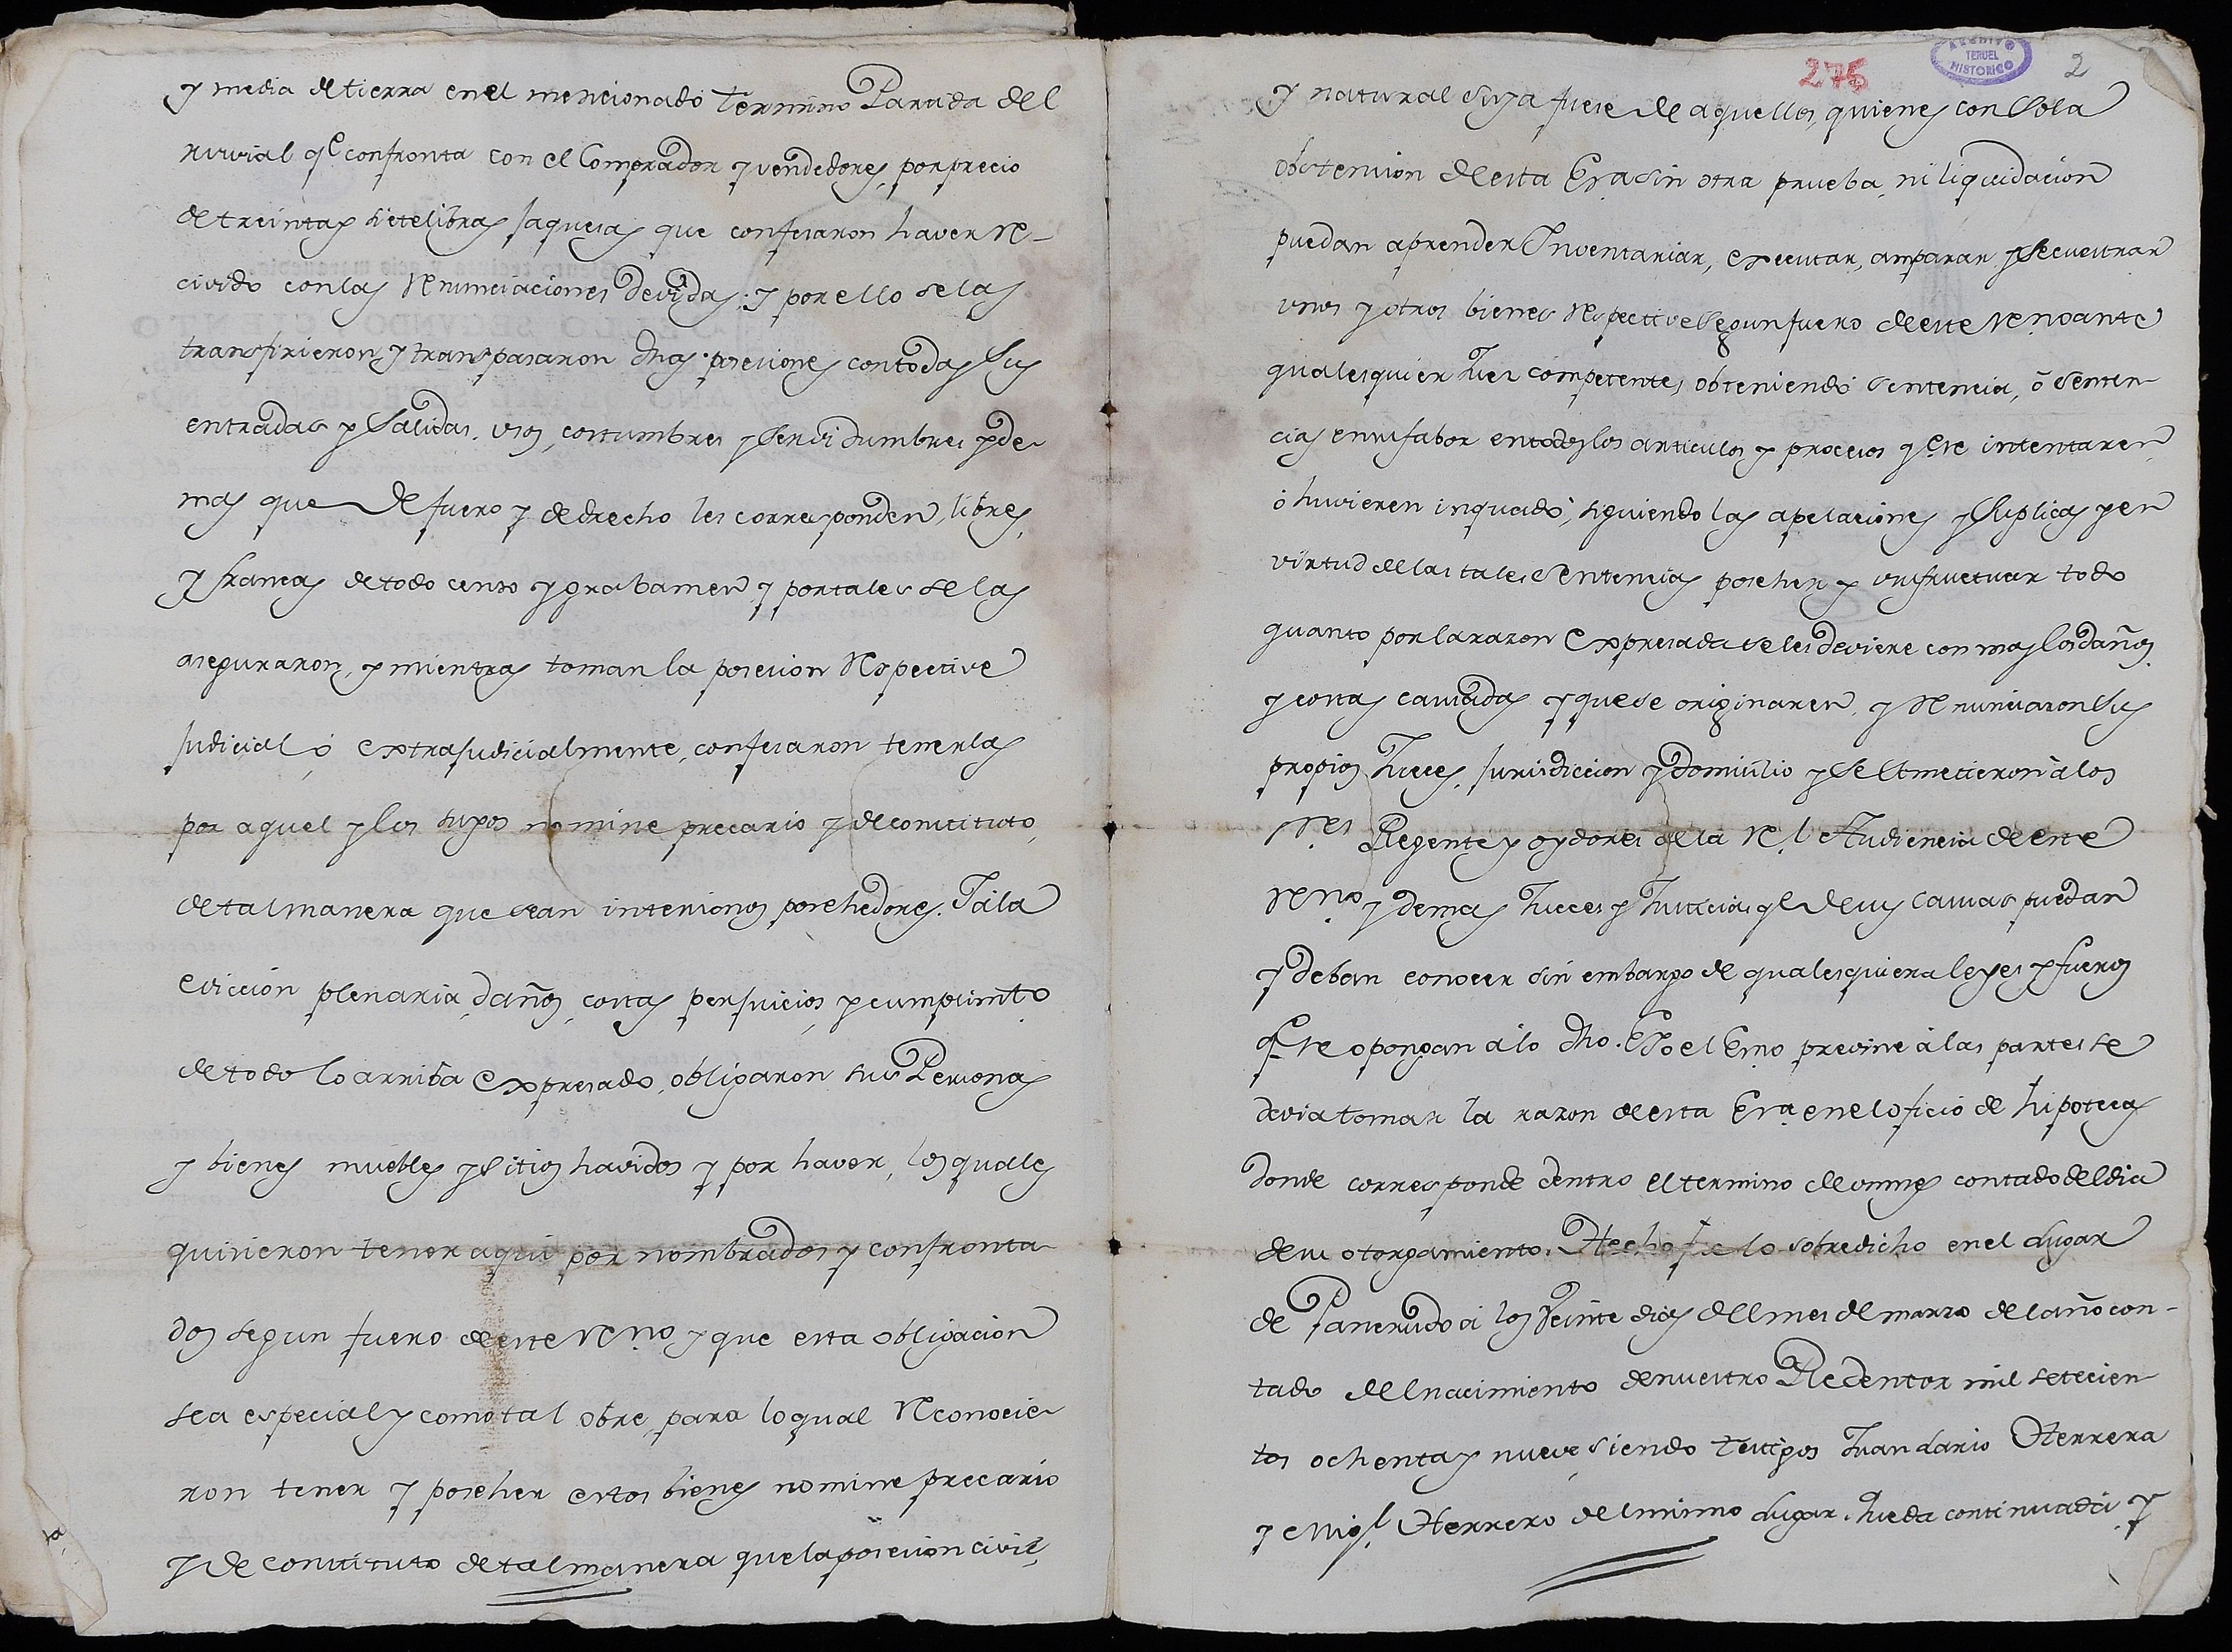 y media de tierra en el mencionado termino Partida del
q.e confronta con el Comprador y vendedores, por precio
de treinta y siete libras jaquesas que confesaron haver re-
civido con las renunciaciones devidas: y por ello se las
transfirieron y transpasaron dhas posesiones con todas sus
entradas y salidas, usos, costumbres y servidumbres y de
mas que de fuero y de drecho les corresponden, libres,
y francas de todo censo y grabamen y por tales se las
aseguraron, y mientras toman la posesion respective
judicial ó extrajudicialmente, confesaron tenerlas
por aquel y los suyos nomine precario y de constituto,
de tal manera que sean posehedores. Y á la
eviccion plenaria, daños, costas, perjuicios, y cumplimto
de todo lo arriba expresado, obligaron sus Personas
y bienes muebles y sitios havidos y por haver, los quales
quisieron tener aqui por nombrados y confronta
dos segun fuero de este Reyno y que esta obligacion
sea especial y como tal obre, para lo qual reconocie
ron tener y poseher estos bienes nomine precario
y de constituto de tal manera que la posesion civil,
275
ARCHIVO HISTORICO TERUEL
2
y natural suya fuese de aquellos, quienes con sola
obstension de esta Esra sin otra prueba, ni liquidacion
puedan aprender Inventariar, executar, amparar y secuestrar
unos y otros bienes respective segun fuero de este Reyno ante
qualesquier Juez competente, obteniendo sentencia, ó senten
cias en su fabor en todos los articulos y procesos q.e se intentaren
ó huvieren, siguiendo las apelaciones y suplicas y en
virtud de las tales sentencias poseher y usufructuar todo
quanto por la razon expresada se les deviere con mas los daños
y costas causadas y que se originaren, y renunciaron sus
propios Jueces, jurisdiccion y domicilio y se sometieron á los
S.res Regente y oydores de la R.l Audiencia de este
Reyno y demas Jueces y Justicias q.e de sus causas puedan
y deban conocer sin embargo de qualesquiera leyes y fueros
q.e se opongan á lo dho. Yo el Esno previne á las partes se
devia tomar la razon de esta Esra en el oficio de hipotecas
donde corresponde dentro el termino de un mes contado del dia
de su otorgamiento. Hecho fue lo sobredicho en el Lugar
de Pancrudo á los veinte dias del mes de marzo del año con-
tado del nacimiento de nuestro Redentor mil setecien
tos ochenta y nueve, siendo testigos Juan Herrera
y Mig.l Herrero del mismo Lugar. Queda continuada, y